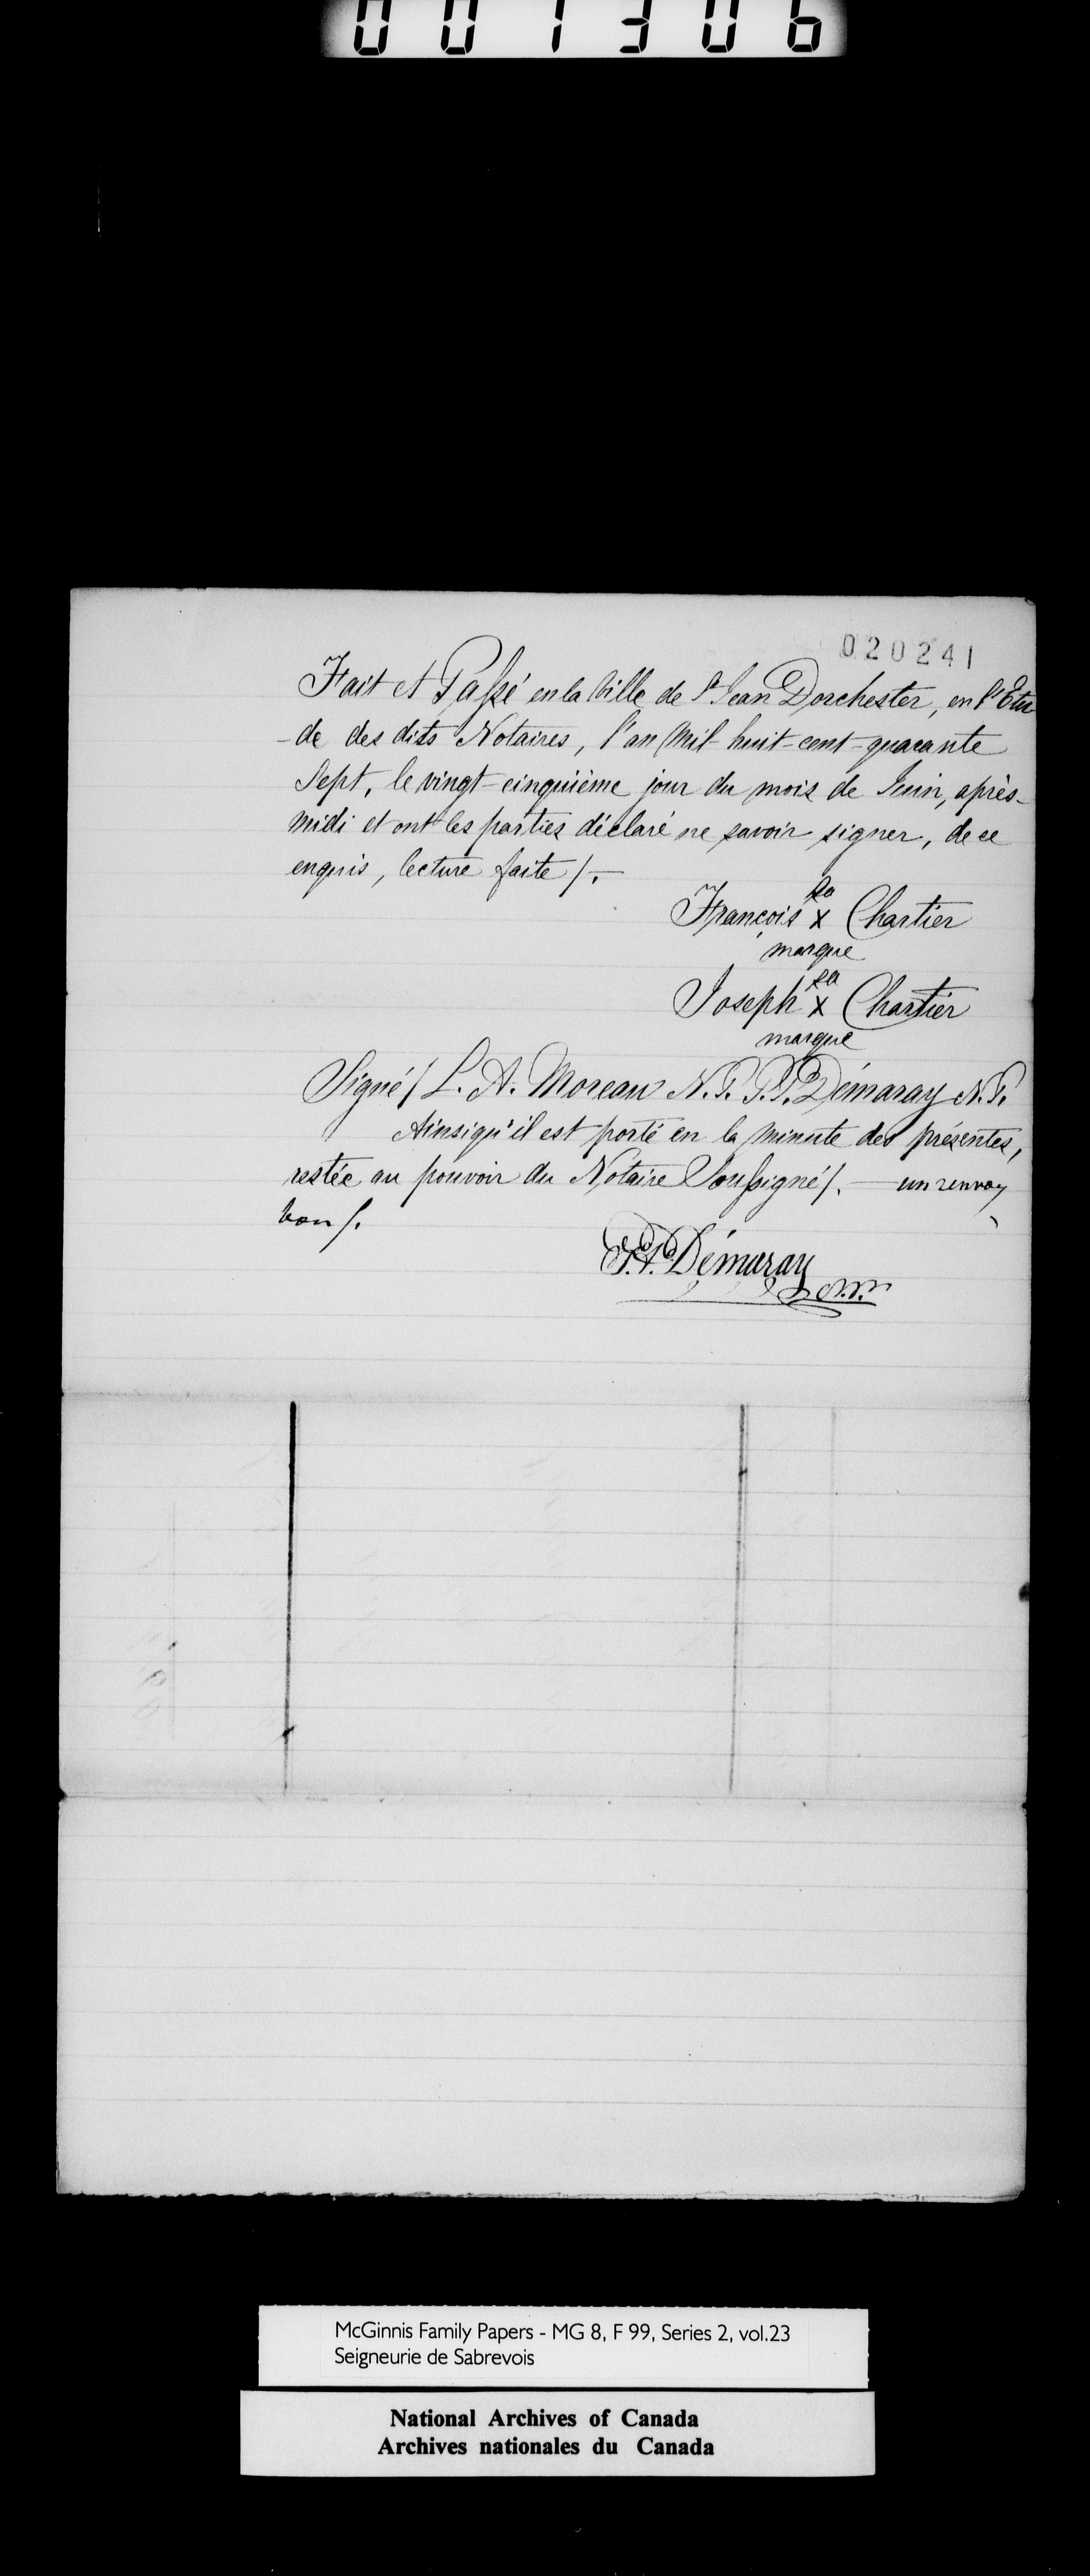 001306
020241
Fait et Passé en la Ville de St Jean Dorchester, en l'Etu
-de des dits Notaires, l'an Mil huit-cent-quarante
Sept, le vingt-cinquième jour du mois de Juin, après-
midi et ont les parties déclaré ne savoir signer, de ce
enquis, lecture faite /. —
sa
François x Chartier
marque
sa
Joseph x Chartier
marque
Signé / L. A. Moreau N. P. P. P. Démaray N. P.
Ainsi qu'il est porté en la minute des présentes,
restée au pouvoir du Notaire Soussigné /. — un renvoy
bon /.
P. P. Démaray
N.P.
McGinnis Family Papers - MG 8, F 99, Series 2, vol.23
Seigneurie de Sabrevois
National Archives of Canada
Archives nationales du Canada